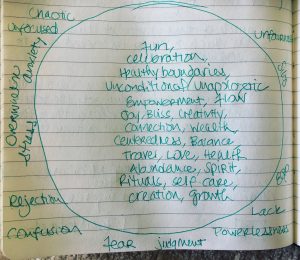 Chaotic
unfocused
anxiety
Overwhelming
stress
Rejection
Confusion
Fun,
celebration,
Healthy boundaries,
Unconditional/unapologetic
Empowerment, Flow
Joy, Bliss, Creativity
Connection, Wealth
Centeredness, Balance
Travel, Love, Health
Abundance, Spirit,
Rituals, self care,
creation, growth
Ego
Lack
Powerlessness
fear judgment